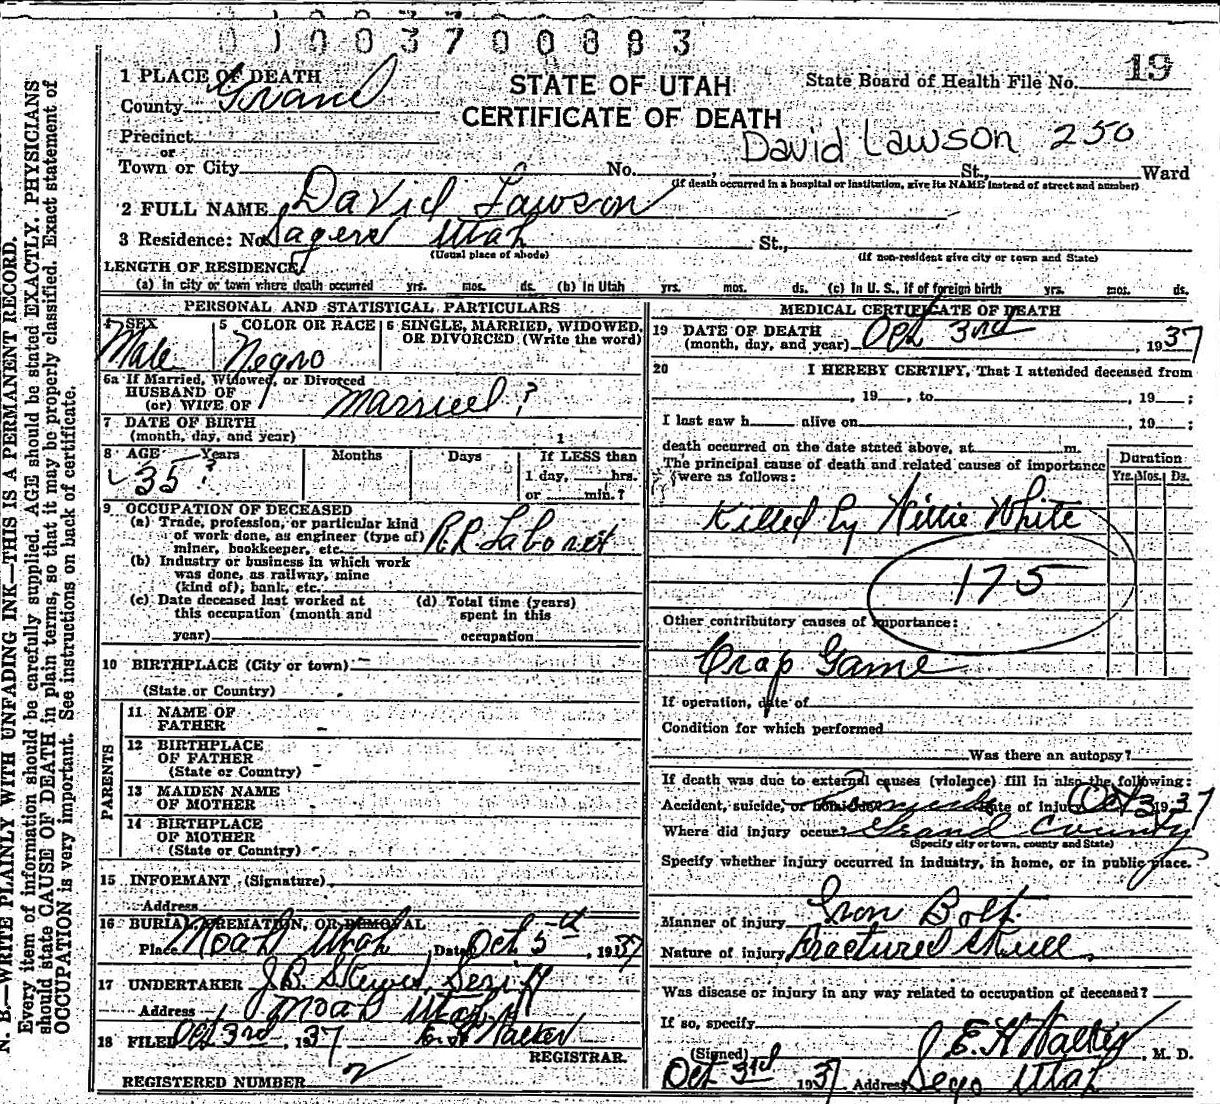 0 1 0 0 3 7 0 0 8 8 3
1 PLACE OF DEATH
County Grand
Precinct
or
Town or City
STATE OF UTAH
CERTIFICATE OF DEATH
State Board of Health File No. 19
David Lawson 250
No. , St., Ward
(If death occurred in a hospital or institution, give its NAME instead of street and number)
2 FULL NAME David Lawson
3 Residence: No. Sagers Utah St.,
(Usual place of abode) (If non-resident give city or town and State)
LENGTH OF RESIDENCE
(a) In city or town where death occurred yrs. mos. ds. (b) In Utah yrs. mos. ds. (c) In U. S., if of foreign birth yrs. mos. ds.
PERSONAL AND STATISTICAL PARTICULARS
4 SEX
Male
5 COLOR OR RACE
Negro
6 SINGLE, MARRIED, WIDOWED,
OR DIVORCED (Write the word)
6a If Married, Widowed, or Divorced
HUSBAND OF
(or) WIFE OF Married?
7 DATE OF BIRTH
(month, day, and year) 1
8 AGE Years Months Days If LESS than
35? 1 day, hrs.
or min.?
9 OCCUPATION OF DECEASED
(a) Trade, profession, or particular kind
of work done, as engineer (type of)
miner, bookkeeper, etc. R.R. Laborer
(b) Industry or business in which work
was done, as railway, mine
(kind of); bank, etc.
(c) Date deceased last worked at
this occupation (month and
year)
(d) Total time (years)
spent in this
occupation
10 BIRTHPLACE (City or town)
(State or Country)
PARENTS
11 NAME OF
FATHER
12 BIRTHPLACE
OF FATHER
(State or Country)
13 MAIDEN NAME
OF MOTHER
14 BIRTHPLACE
OF MOTHER
(State or Country)
15 INFORMANT (Signature)
Address
16 BURIAL, CREMATION, OR REMOVAL
Place Moab Utah Date Oct 5th, 1937
17 UNDERTAKER J.B. Skewes, Seriff
Address Moab Utah
18 FILED Oct 3rd, 1937 E.H. Walker
REGISTRAR.
REGISTERED NUMBER 2
MEDICAL CERTIFICATE OF DEATH
19 DATE OF DEATH
(month, day, and year) Oct 3rd, 1937
20 I HEREBY CERTIFY, That I attended deceased from
, 19 , to , 19 ;
I last saw h alive on , 19 ;
death occurred on the date stated above, at m.
The principal cause of death and related causes of importance
were as follows:
Duration
Yrs. Mos. Ds.
Killed by Willie White
175
Other contributory causes of importance:
Crap Game
If operation, date of
Condition for which performed
Was there an autopsy?
If death was due to external causes (violence) fill in also the following:
Accident, suicide, or homicide? Homicide Date of injury Oct 3 1937
Where did injury occur? Grand County
(Specify city or town, county and State)
Specify whether injury occurred in industry, in home, or in public place.
Manner of injury Iron Bolt.
Nature of injury Fractured Skull.
Was disease or injury in any way related to occupation of deceased?
If so, specify
(Signed) E H Walker, M. D.
Oct 3rd 1937 Address Sego Utah
N. B.—WRITE PLAINLY WITH UNFADING INK—THIS IS A PERMANENT RECORD.
Every item of information should be carefully supplied. AGE should be stated EXACTLY. PHYSICIANS
should state CAUSE OF DEATH in plain terms, so that it may be properly classified. Exact statement of
OCCUPATION is very important. See instructions on back of certificate.